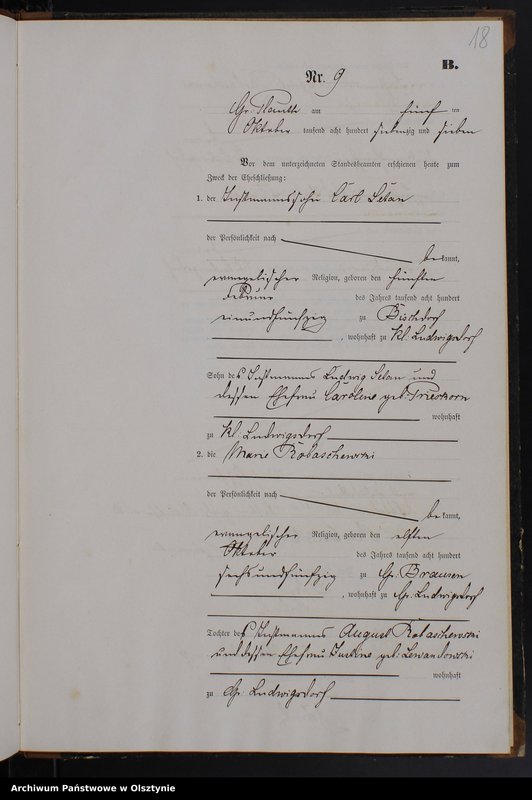 18
B.
Nr. 9
Gr. Plauth am fünf ten
Oktober tausend acht hundert siebenzig und sieben
Vor dem unterzeichneten Standesbeamten erschienen heute zum
Zweck der Eheschließung:
1. der Instmannssohn Carl Setan
der Persönlichkeit nach
bekannt,
evangelischer Religion, geboren den fünften
Februar des Jahres tausend acht hundert
einundfünfzig zu Bischdorf
, wohnhaft zu Kl. Ludwigsdorf
Sohn des Instmanns Ludwig Setan und
dessen Ehefrau Caroline geb.
wohnhaft
zu Kl. Ludwigsdorf
2. die Marie Robaschewski
der Persönlichkeit nach
bekannt,
evangelischer Religion, geboren den elften
Oktober des Jahres tausend acht hundert
sechsundfünfzig zu Gr. Brausen
, wohnhaft zu Gr. Ludwigsdorf
Tochter des Instmanns August Robaschewski
und dessen Ehefrau Justine geb. Lewandowski
wohnhaft
zu Gr. Ludwigsdorf
Archiwum Państwowe w Olsztynie